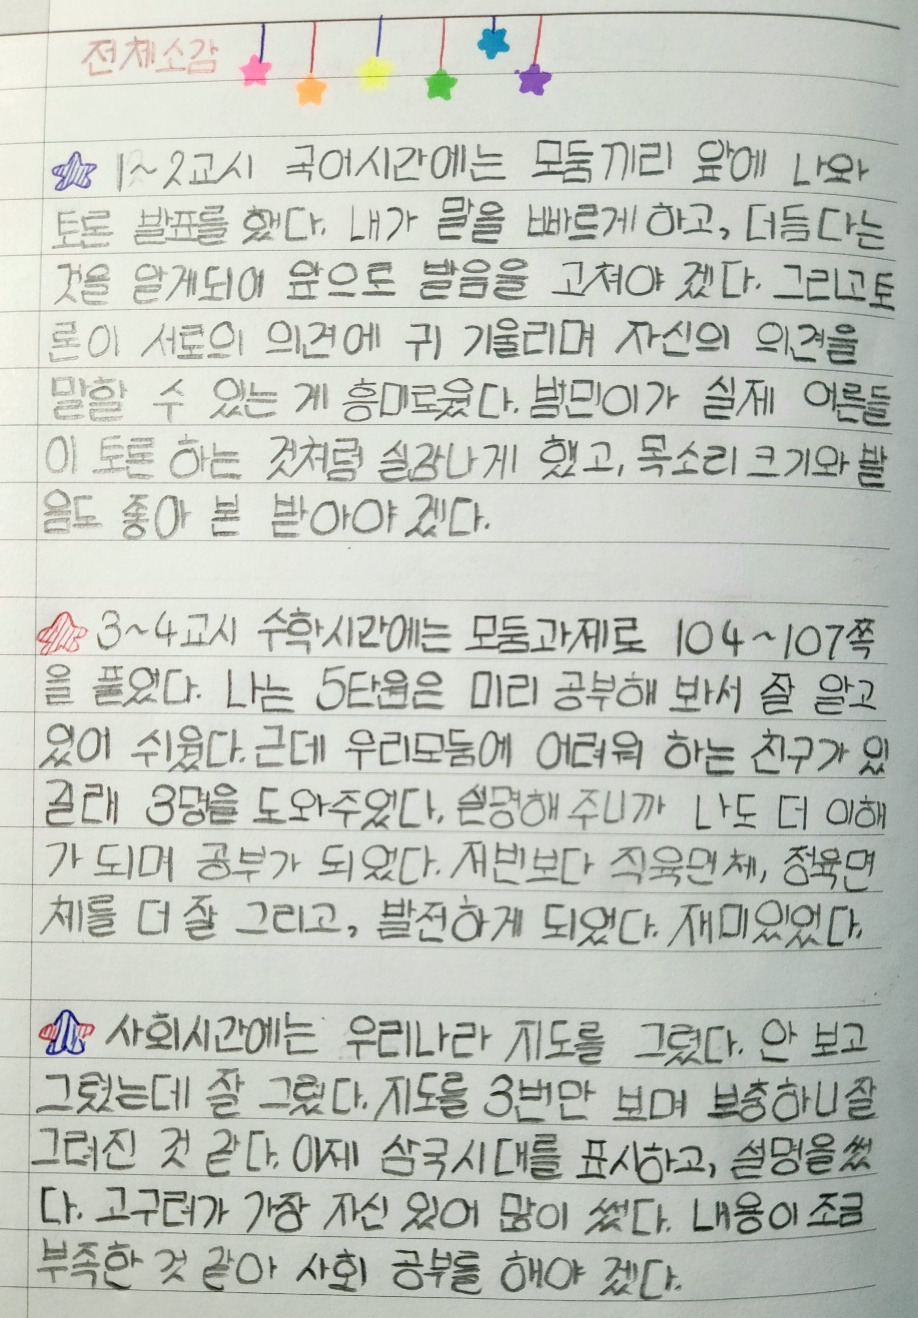 전체소감
1~2교시 국어시간에는 모둠끼리 앞에 나와
토론 발표를 했다. 내가 말을 빠르게 하고, 더듬다는
것을 알게되어 앞으로 발음을 고쳐야 겠다. 그리고 토
론이 서로의 의견에 귀 기울리며 자신의 의견을
말할 수 있는 게 흥미로웠다. 범민이가 실제 어른들
이 토론 하는 것처럼 실감나게 했고, 목소리 크기와 발
음도 좋아 본 받아야 겠다.
3~4교시 수학시간에는 모둠과제로 104~107쪽
을 풀었다. 나는 5단원은 미리 공부해 봐서 잘 알고
있어 쉬웠다. 근데 우리모둠에 어려워 하는 친구가 있
길래 3명을 도와주었다. 설명해 주니까 나도 더 이해
가 되며 공부가 되었다. 저번보다 직육면체, 정육면
체를 더 잘 그리고, 발전하게 되었다. 재미있었다.
사회시간에는 우리나라 지도를 그렸다. 안 보고
그렸는데 잘 그렸다. 지도를 3번만 보며 보충하니 잘
그려진 것 같다. 이제 삼국시대를 표시하고, 설명을 썼
다. 고구려가 가장 자신 있어 많이 썼다. 내용이 조금
부족한 것 같아 사회 공부를 해야 겠다.